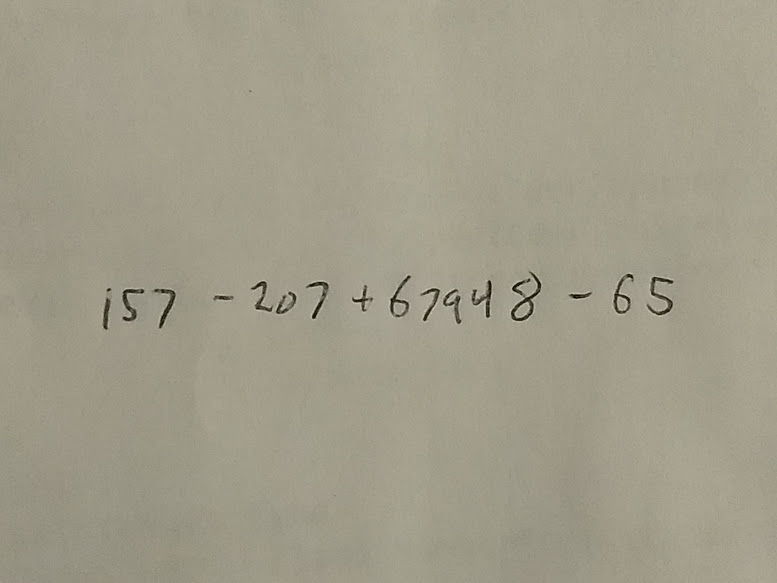 157 - 207 + 67948 - 65